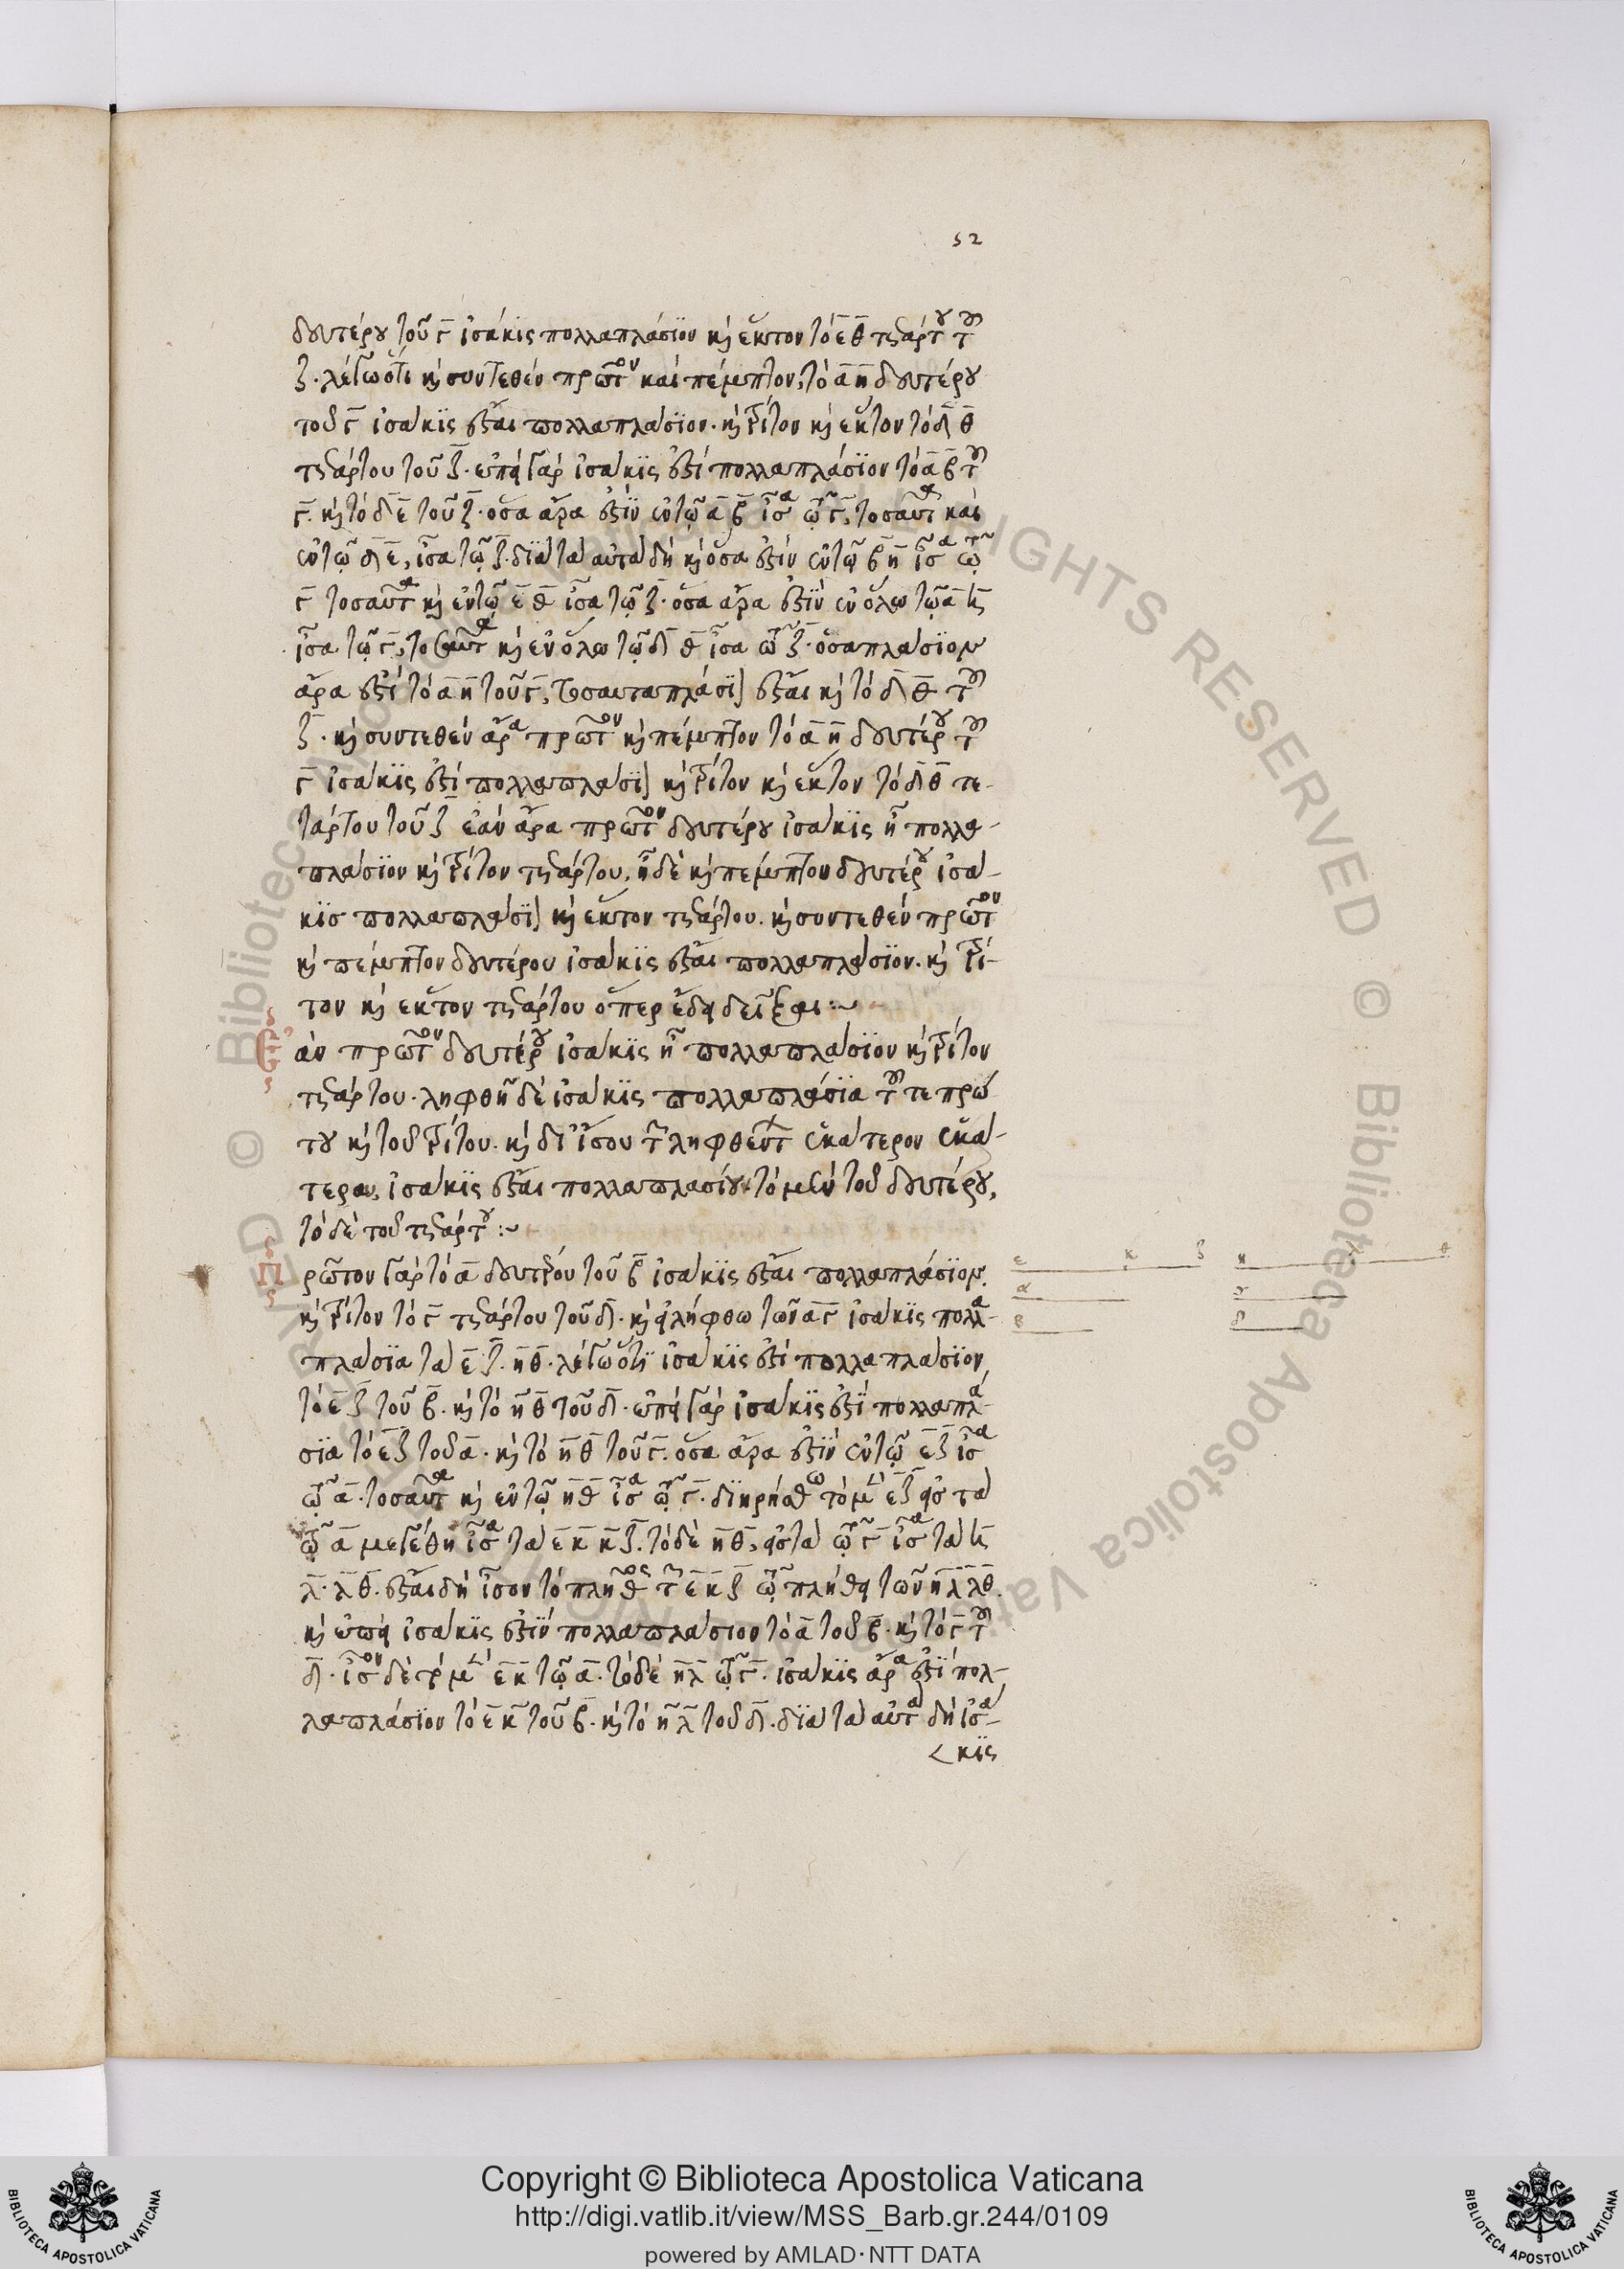 52
δευτέρου τοῦ γ ἰσάκις πολλαπλάσιον καὶ ἕκτον τὸ ε θ τετάρτου τοῦ
ζ. λέγω ὅτι καὶ συντεθὲν πρῶτον καὶ πέμπτον, τὸ α η δευτέρου
τοῦ γ ἰσάκις ἔσται πολλαπλάσιον. καὶ τρίτον καὶ ἕκτον τὸ δ θ
τετάρτου τοῦ ζ. ἐπεὶ γὰρ ἰσάκις ἐστὶ πολλαπλάσιον τὸ α β τοῦ
γ. καὶ τὸ δ ε τοῦ ζ. ὅσα ἄρα ἐστὶν ἐν τῷ α β ἴσα τῷ γ, τοσαῦτα καὶ
ἐν τῷ δ ε, ἴσα τῷ ζ. διὰ τὰ αὐτὰ δὴ καὶ ὅσα ἐστὶν ἐν τῷ β η ἴσα τῷ
γ τοσαῦτα καὶ ἐν τῷ ε θ ἴσα τῷ ζ. ὅσα ἄρα ἐστὶν ἐν ὅλῳ τῷ α η
ἴσα τῷ γ, τοσαῦτα καὶ ἐν ὅλῳ τῷ δ θ ἴσα τῷ ζ. ὁσαπλάσιον
ἄρα ἐστὶ τὸ α η τοῦ γ, τοσαυταπλάσιον ἔσται καὶ τὸ δ θ τοῦ
ζ. καὶ συντεθὲν ἄρα πρῶτον καὶ πέμπτον τὸ α η δευτέρου τοῦ
γ ἰσάκις ἐστὶ πολλαπλάσιον καὶ τρίτον καὶ ἕκτον τὸ δ θ τε-
τάρτου τοῦ ζ ἐὰν ἄρα πρῶτον δευτέρου ἰσάκις ᾖ πολλα-
πλάσιον καὶ τρίτον τετάρτου, ᾖ δὲ καὶ πέμπτον δευτέρου ἰσά-
κις πολλαπλάσιον καὶ ἕκτον τετάρτου. καὶ συντεθὲν πρῶτον
καὶ πέμπτον δευτέρου ἰσάκις ἔσται πολλαπλάσιον. καὶ τρί-
τον καὶ ἕκτον τετάρτου ὅπερ ἔδει δεῖξαι :~
Ἐὰν πρῶτον δευτέρου ἰσάκις ᾖ πολλαπλάσιον καὶ τρίτον
τετάρτου. ληφθῇ δὲ ἰσάκις πολλαπλάσια τοῦ τε πρώ
του καὶ τοῦ τρίτου. καὶ δι' ἴσου τῶν ληφθέντων ἑκάτερον ἑκα-
τέρου, ἰσάκις ἔσται πολλαπλάσιον. τὸ μὲν τοῦ δευτέρου,
τὸ δὲ τοῦ τετάρτου :~
Πρῶτον γὰρ τὸ α δευτέρου τοῦ β ἰσάκις ἔσται πολλαπλάσιον.
καὶ τρίτον τὸ γ τετάρτου τοῦ δ. καὶ εἰλήφθω τῶν α γ ἰσάκις πολλα-
πλάσια τὰ ε ζ. η θ. λέγω ὅτι ἰσάκις ἐστὶ πολλαπλάσιον
τὸ ε ζ τοῦ β. καὶ τὸ η θ τοῦ δ. ἐπεὶ γὰρ ἰσάκις ἐστὶ πολλαπλά-
σια τὸ ε ζ τοῦ α. καὶ τὸ η θ τοῦ γ. ὅσα ἄρα ἐστὶν ἐν τῷ ε ζ ἴσα
τῷ α. τοσαῦτα καὶ ἐν τῷ η θ ἴσα τῷ γ. διῃρήσθω τὸ μὲν ε ζ εἰς τὰ
τῷ α μεγέθη ἴσα τὰ ε κ κ ζ. τὸ δὲ η θ, εἰς τὰ τῷ γ ἴσα τὰ η
λ. λ θ. ἔσται δὴ ἴσον τὸ πλῆθος τῶν ε κ ζ τῷ πλήθει τῶν η λ λ θ.
καὶ ἐπεὶ ἰσάκις ἐστὶν πολλαπλάσιον τὸ α τοῦ β. καὶ τὸ γ τοῦ
δ. ἴσον δὲ τὸ μὲν ε κ τῷ α. τὸ δὲ η λ τῷ γ. ἰσάκις ἄρα ἐστὶ πολ-
λαπλάσιον τὸ ε κ τοῦ β. καὶ τὸ η λ τοῦ δ. διὰ τὰ αὐτὰ δὴ ἰσά-
κις
ε κ ζ η λ θ
α γ
β δ
Copyright © Biblioteca Apostolica Vaticana
http://digi.vatlib.it/view/MSS_Barb.gr.244/0109
powered by AMLAD·NTT DATA
BIBLIOTECA APOSTOLICA VATICANA
BIBLIOTECA APOSTOLICA VATICANA